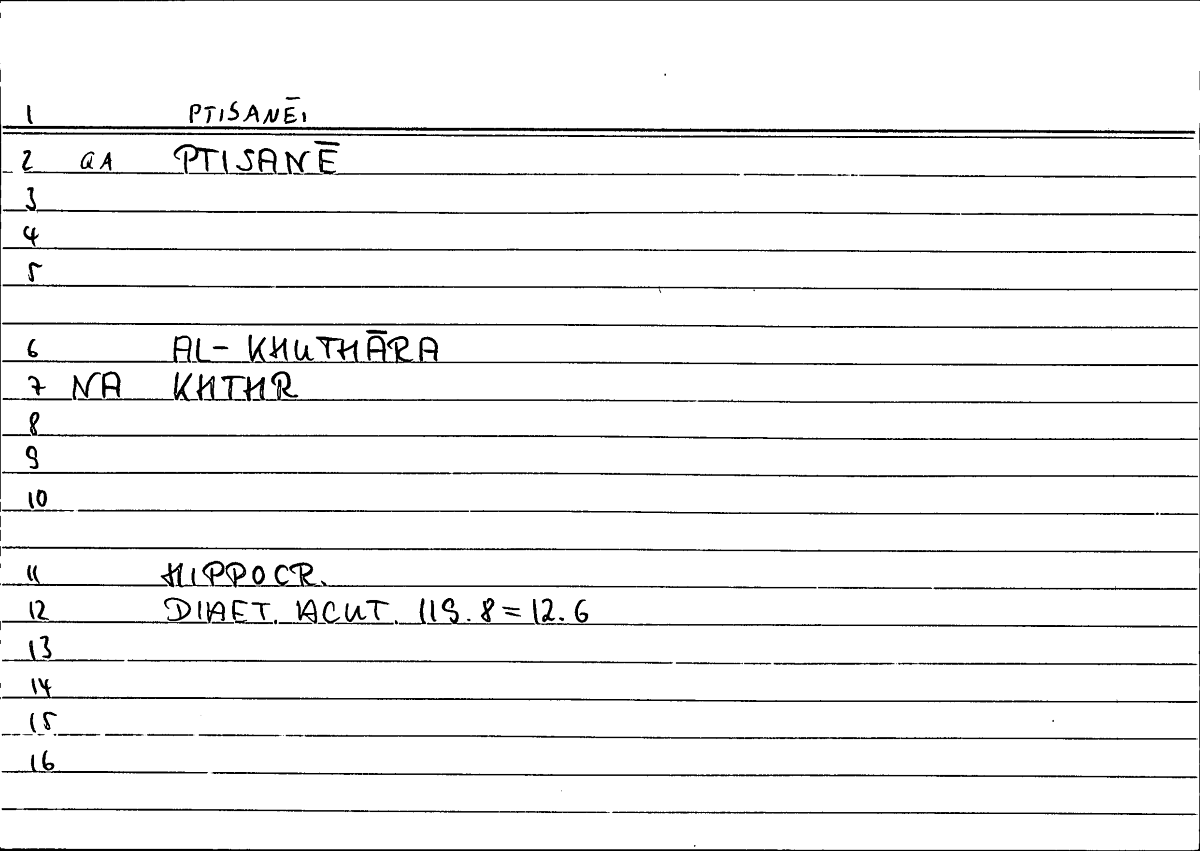 1 PTISANĒI
2 QA PTISANĒ
3
4
5
6 AL-KHUTHĀRA
7 NA KHTHR
8
9
10
11 HIPPOCR.
12 DIAET. ACUT. 119.8 = 12.6
13
14
15
16